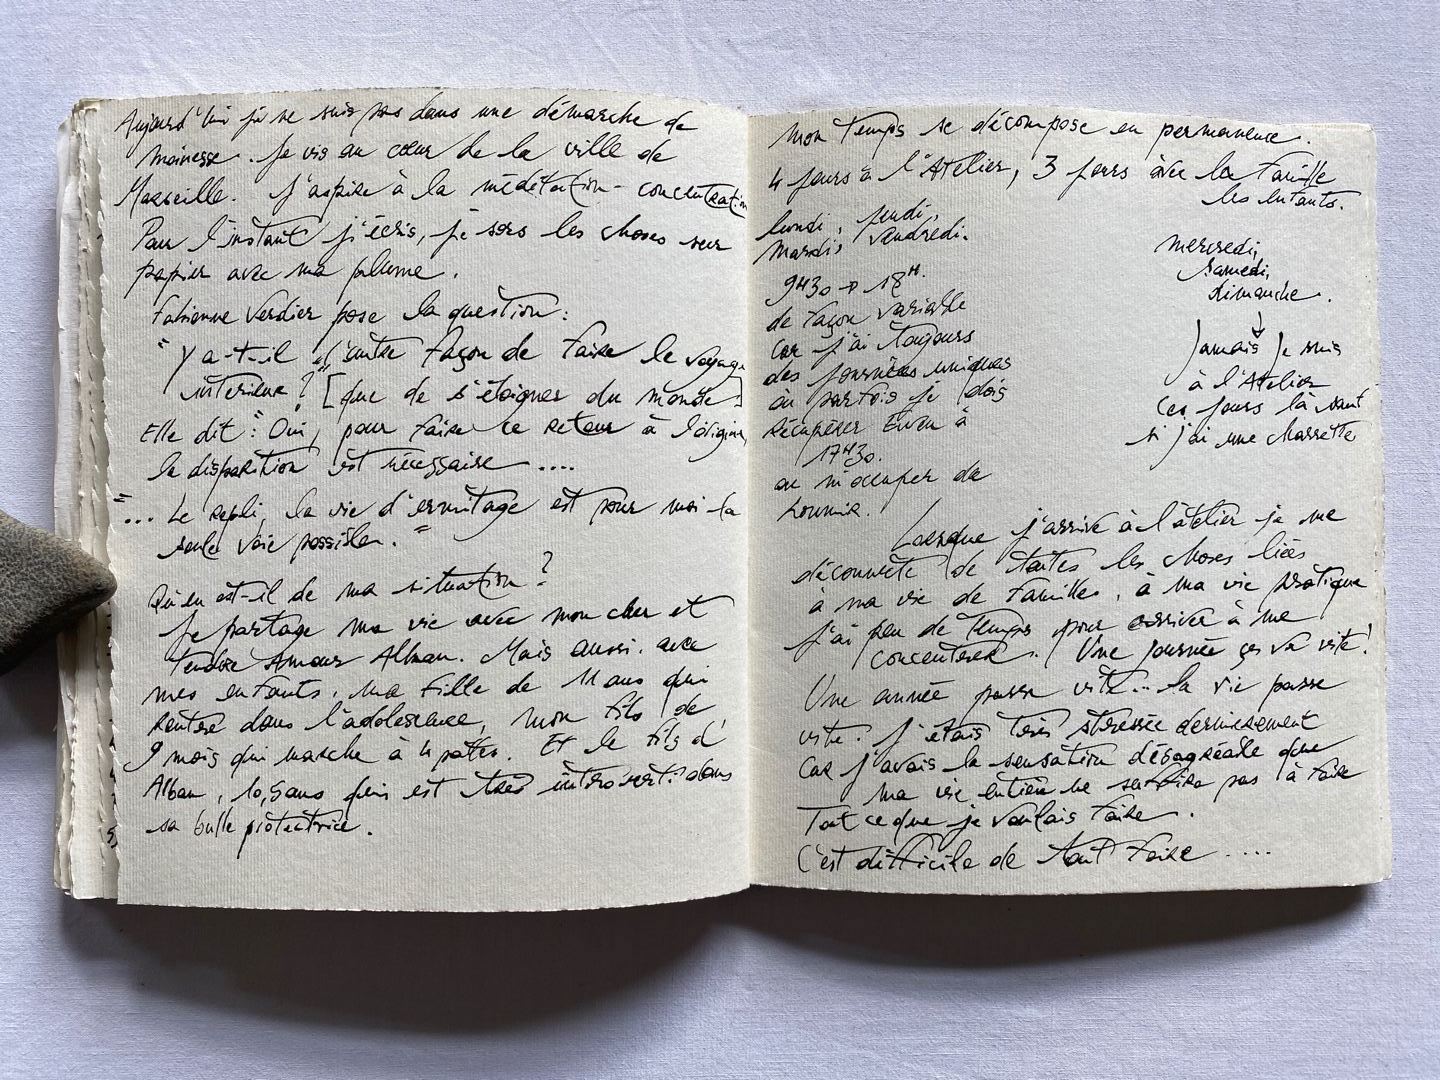 Aujourd'hui je ne suis pas dans une démarche de
moinesse. Je vis au cœur de la ville de
Marseille. J'aspire à la méditation - concentration
Pour l'instant j'écris, je sors les choses sur
papier avec ma plume.
Fabienne Verdier pose la question:
"Y a-t-il d'autre façon de faire le voyage
intérieur?" [que de s'éloigner du monde]
Elle dit: "Oui, pour faire ce retour à l'origine,
la disparition est nécessaire ....
"... Le repli, la vie d'ermitage est pour moi la
seule voie possible."
Qu'en est-il de ma situation?
Je partage ma vie avec mon cher et
tendre Amour Alban. Mais aussi avec
mes enfants, ma fille de 11 ans qui
rentre dans l'adolescence, mon fils de
9 mois qui marche à 4 pates. Et le fils d'
Alban, 10,5 ans qui est très introverti dans
sa bulle protectrice.
Mon temps se décompose en permanence.
4 jours à l'Atelier, 3 jours avec la famille
les enfants.
lundi, jeudi,
mardis vendredi.
9H30 → 18H.
de façon variable
car j'ai toujours
des journées uniques
ou parfois je dois
récupérer à
17H30.
ou m'occuper de
mercredi,
samedi,
dimanche.
↓
Jamais je suis
à l'Atelier
ces jours là sauf
si j'ai une charrette
Lorsque j'arrive à l'atelier je me
déconnecte de toutes les choses liées
à ma vie de familles, à ma vie pratique
J'ai peu de temps pour arriver à me
concentrer. Une journée ça va vite!
Une année passe vite... la vie passe
vite. J'étais très stressée dernièrement
car j'avais la sensation désagréable que
ma vie entière ne suffira pas à faire
Tout ce que je voulais faire.
C'est difficile de tout faire ....